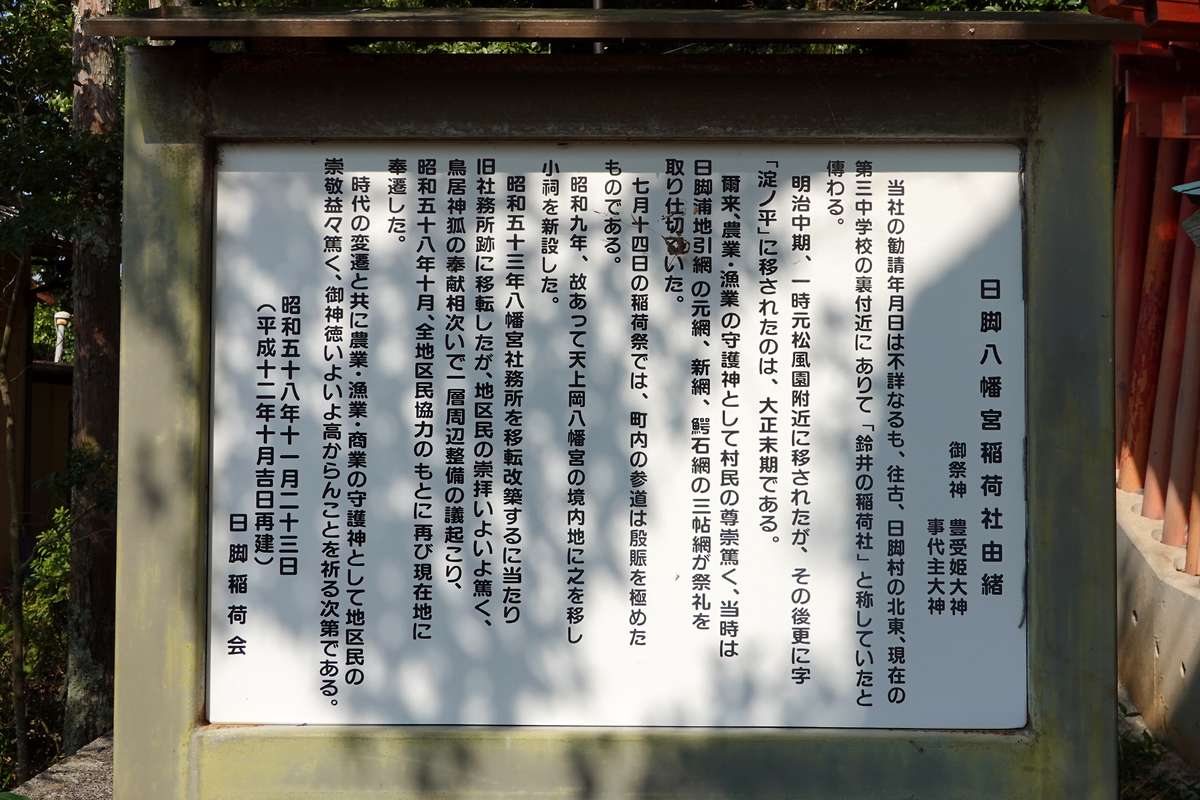 日脚八幡宮稲荷社由緒
御祭神　豊受姫大神
事代主大神
当社の勧請年月日は不詳なるも、往古、日脚村の北東、現在の
第三中学校の裏付近にありて「鈴井の稲荷社」と称していたと
傳わる。
明治中期、一時元松風園附近に移されたが、その後更に字
「淀ノ平」に移されたのは、大正末期である。
爾来、農業・漁業の守護神として村民の尊崇篤く、当時は
日脚浦地引網の元網、新網、鰐石網の三帖網が祭礼を
取り仕切ていた。
七月十四日の稲荷祭では、町内の参道は殷賑を極めた
ものである。
昭和九年、故あって天上岡八幡宮の境内地に之を移し
小祠を新設した。
昭和五十三年八幡宮社務所を移転改築するに当たり
旧社務所跡に移転したが、地区民の崇拝いよいよ篤く、
鳥居神狐の奉献相次いで一層周辺整備の議起こり、
昭和五十八年十月、全地区民協力のもとに再び現在地に
奉遷した。
時代の変遷と共に農業・漁業・商業の守護神として地区民の
崇敬益々篤く、御神徳いよいよ高からんことを祈る次第である。
昭和五十八年十一月二十三日
（平成十二年十月吉日再建）
日脚稲荷会